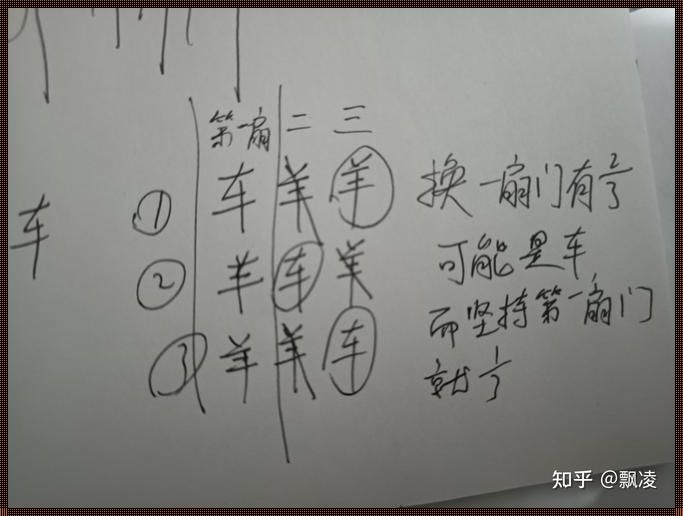 第一扇 二 三
① 车 羊 羊 换一扇门有2/3
车
② 羊 车 羊 可能是车
而坚持第一扇门
③ 羊 羊 车
就1/3
知乎 @飘凌